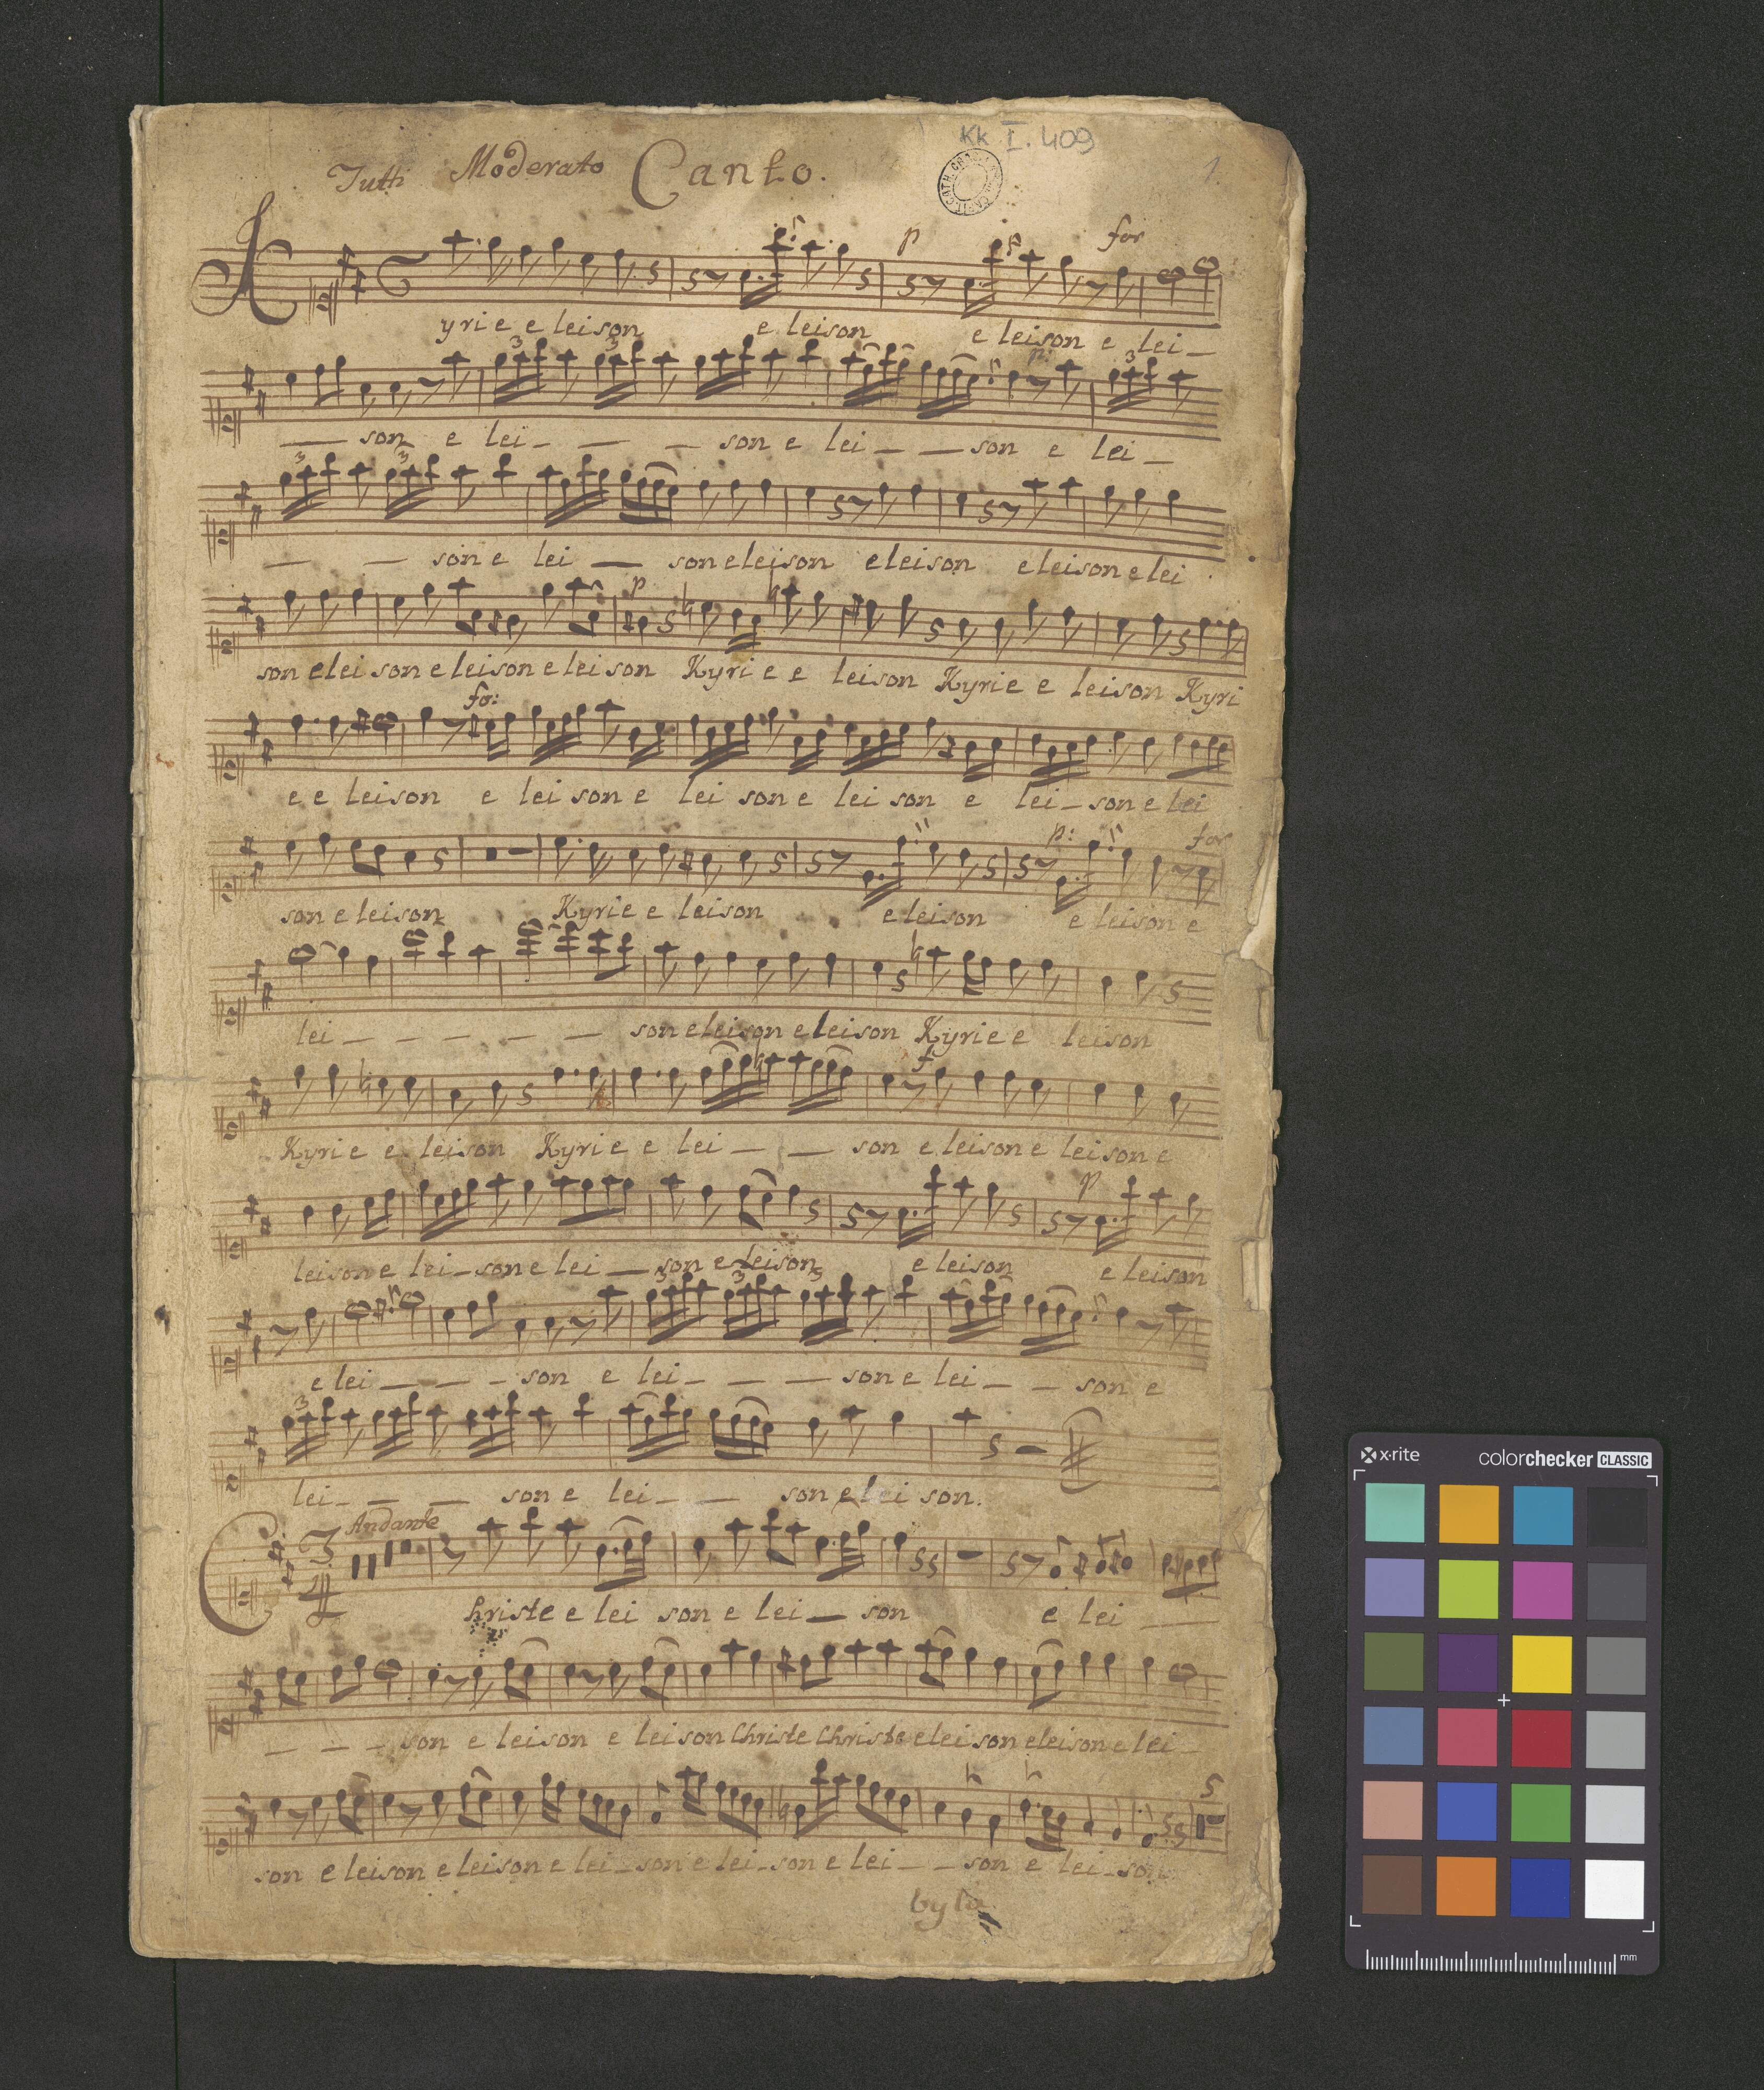 Kk I. 409
1.
Tutti Moderato Canto.
p for
Kyrie e leison e leison e leison e lei_
3 3 p: 3
__ son e lei_ _ _ son e lei _ _ son e lei _
3 3
_ _ son e lei _ son eleison eleison eleison e lei
p
son elei son e leison e lei son Kyri e e leison Kyrie e leison Kyri
fo:
e e leison e lei son e lei son e lei son e lei_ son e lei
p: for
son e leison Kyrie e leison e leison e leison e
lei _ _ _ _ _ _ son eleison eleison Kyrie e leison
f
Kyrie e leison Kyrie e lei _ _ son e leison e leison e
p
leison e lei_son e lei _ son e leison e leison e leison
3 3 3
e lei _ _ _ son e lei_ _ _ son e lei _ _ son e
3
lei_ _ _ son e lei_ _ son e lei son.
Andante
3
4
Christe e lei son e lei _ son e lei _
_ _ _ son e leison e lei son Christe Christe elei son eleison e lei_
son e leison e leison e lei_son e lei_son e lei _ _ son e lei_son
x-rite colorchecker CLASSIC
mm